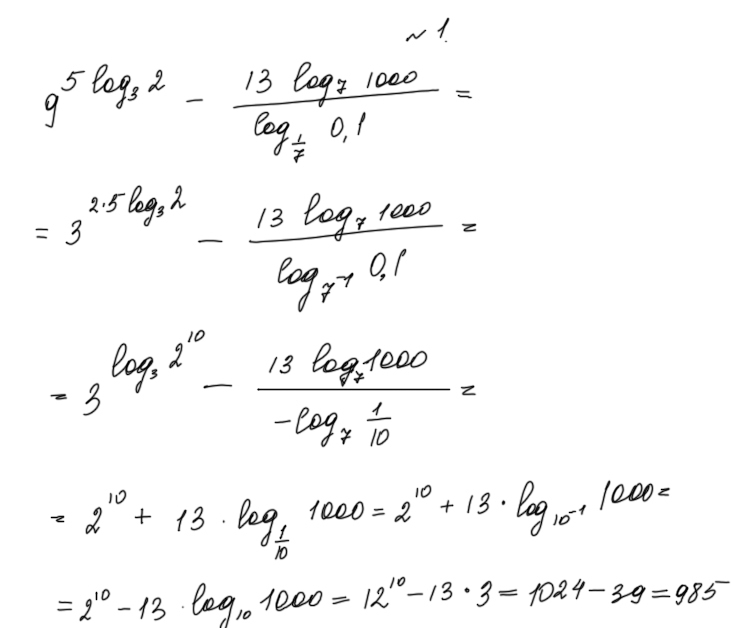 ~ 1.
9^{5 log_3 2} - \frac{13 log_7 1000}{log_{\frac{1}{7}} 0,1} =
= 3^{2·5 log_3 2} - \frac{13 log_7 1000}{log_{7^{-1}} 0,1} =
= 3^{log_3 2^{10}} - \frac{13 log_7 1000}{-log_7 \frac{1}{10}} =
= 2^{10} + 13 · log_{\frac{1}{10}} 1000 = 2^{10} + 13 · log_{10^{-1}} 1000 =
= 2^{10} - 13 · log_{10} 1000 = 12^{10} - 13 · 3 = 1024 - 39 = 985